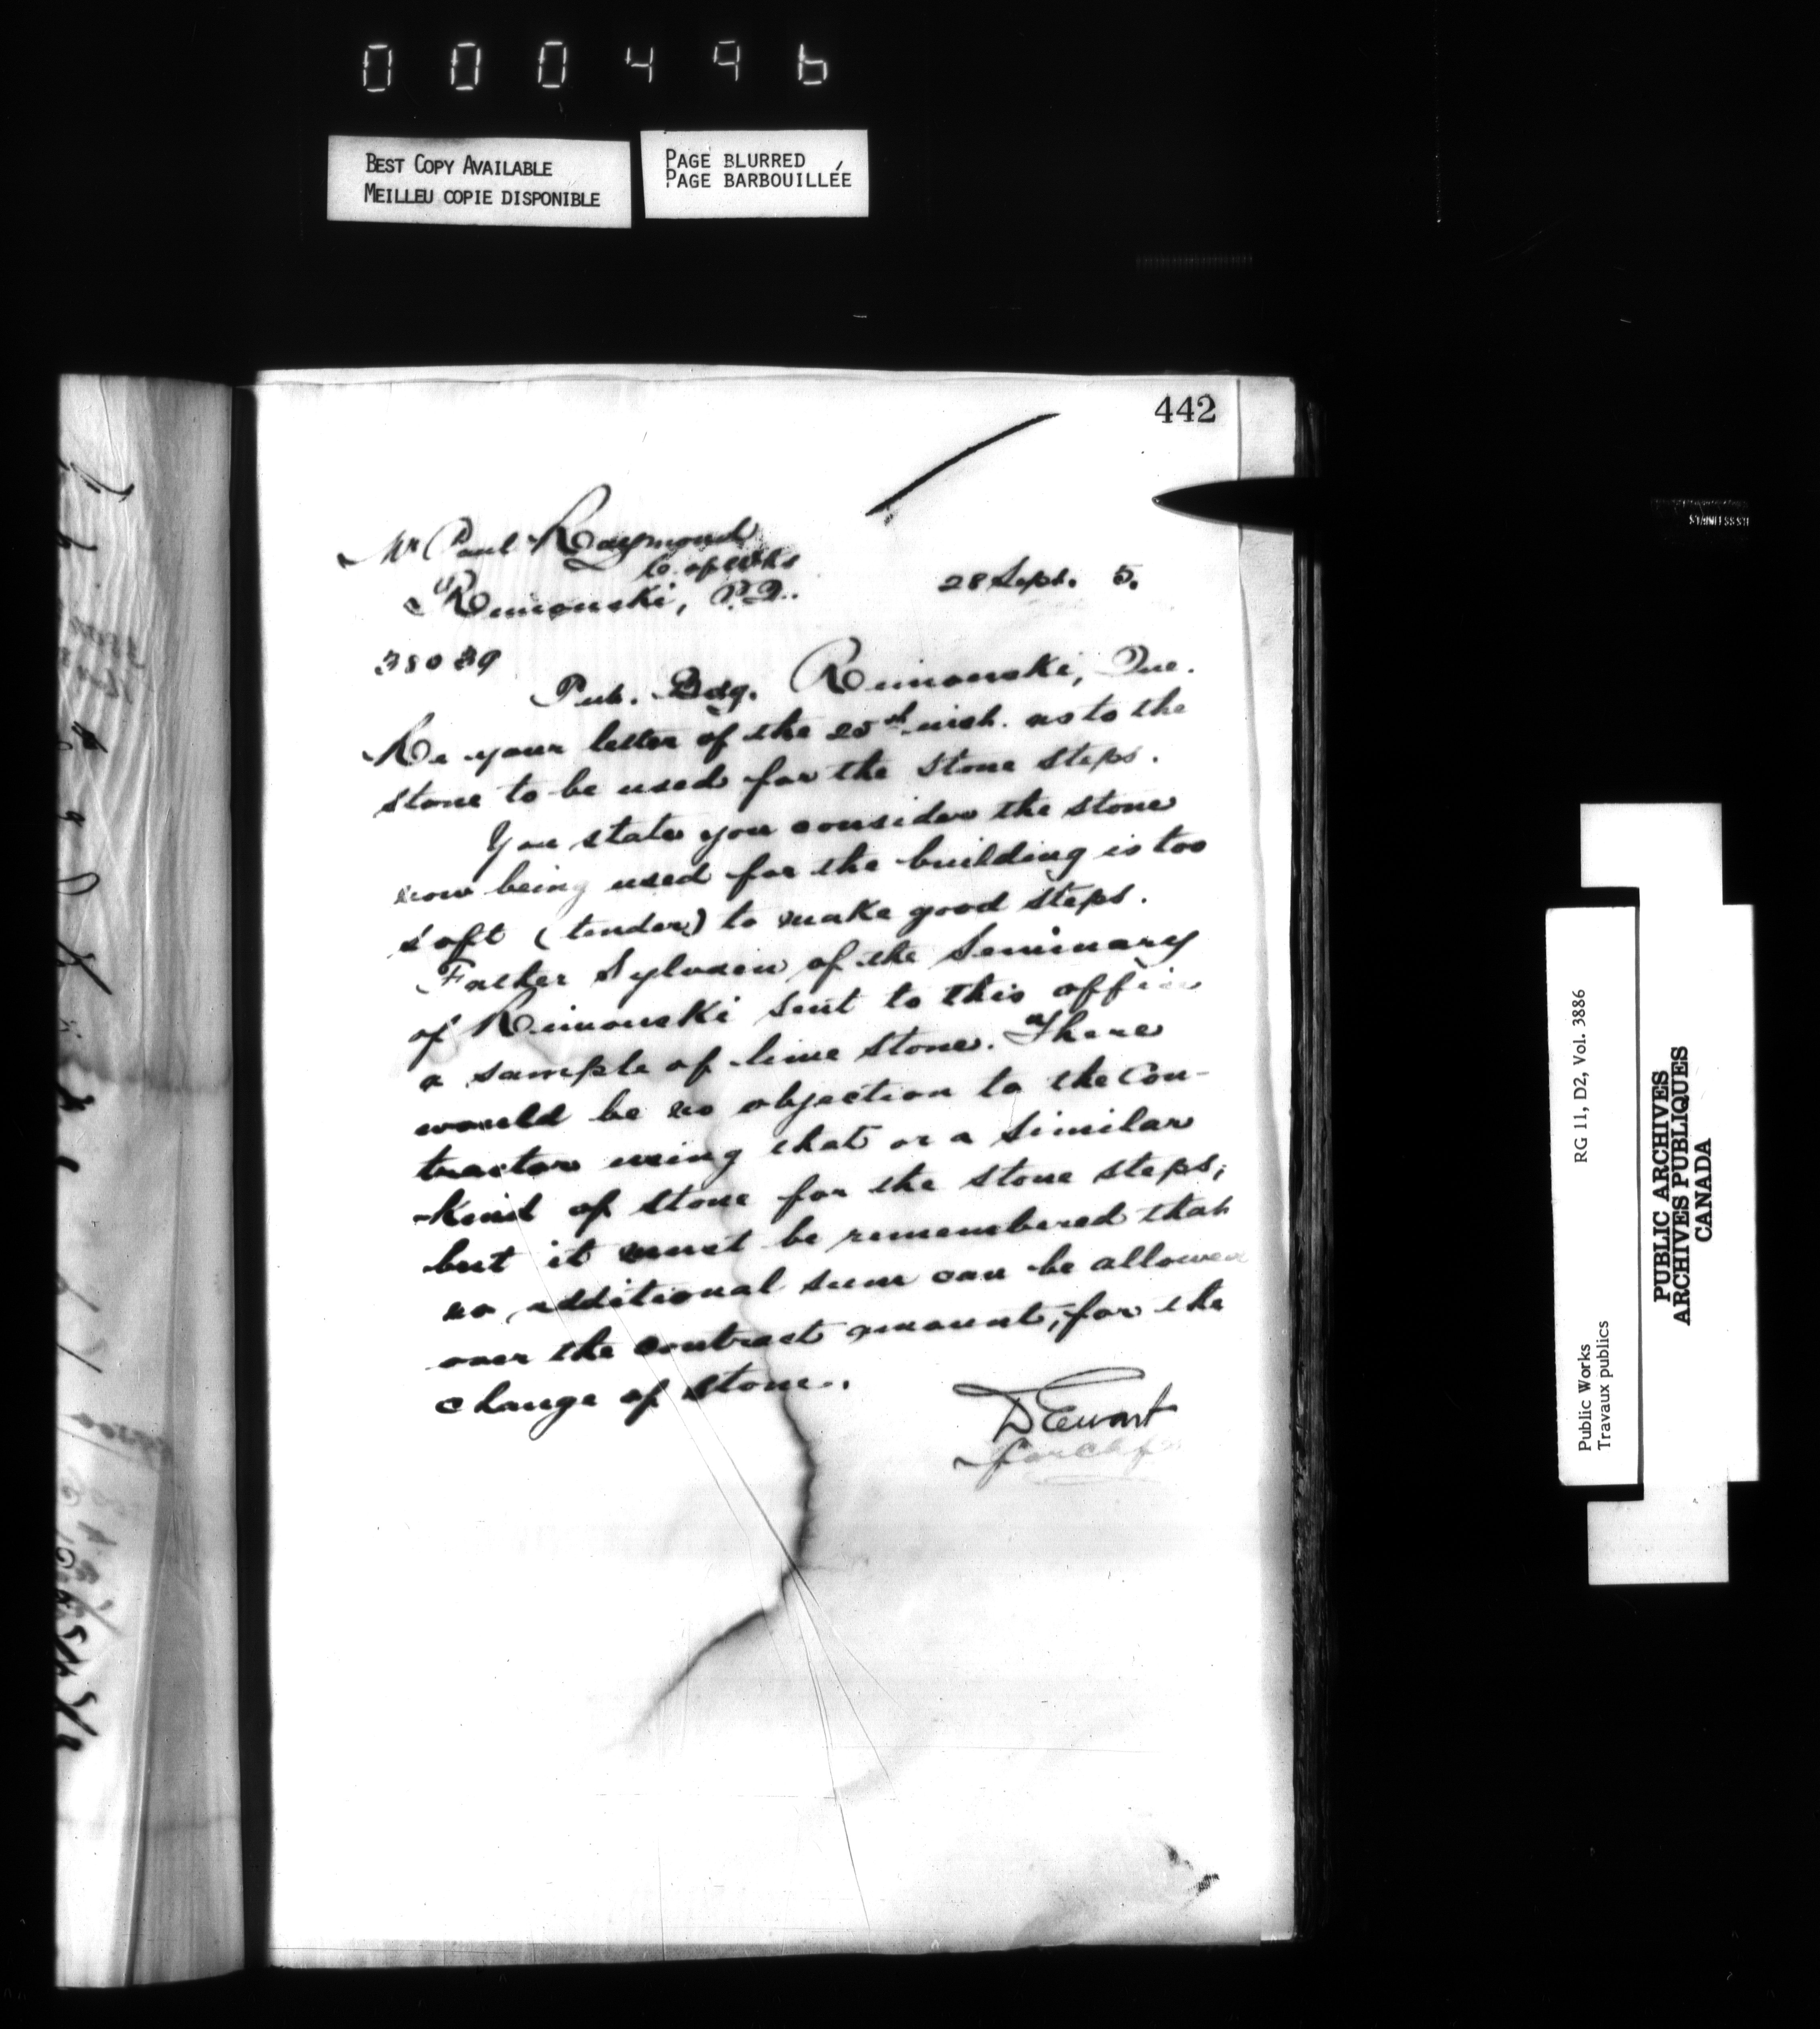 000496
BEST COPY AVAILABLE
MEILLEU COPIE DISPONIBLE
PAGE BLURRED
PAGE BARBOUILLÉE
442
Mr Paul Raymond
C. of Wks
Rimouski, P.Q.
28 Sept. 5.
38039
Pub. Bdg. Rimouski, Que.
Re your letter of the 25th inst. as to the
stone to be used for the stone steps.
You state you consider the stone
now being used for the building is too
soft (tender) to make good steps.
Father Sylvain of the Seminary
of Rimouski sent to this office
a sample of lime stone. There
would be no objection to the Con-
tractor using that or a similar
kind of stone for the stone steps;
but it must be remembered that
no additional sum can be allowed
over the contract amount, for the
change of stone.
D Ewart
STAINLESS ST
Public Works
Travaux publics
RG 11, D2, Vol. 3886
PUBLIC ARCHIVES
ARCHIVES PUBLIQUES
CANADA